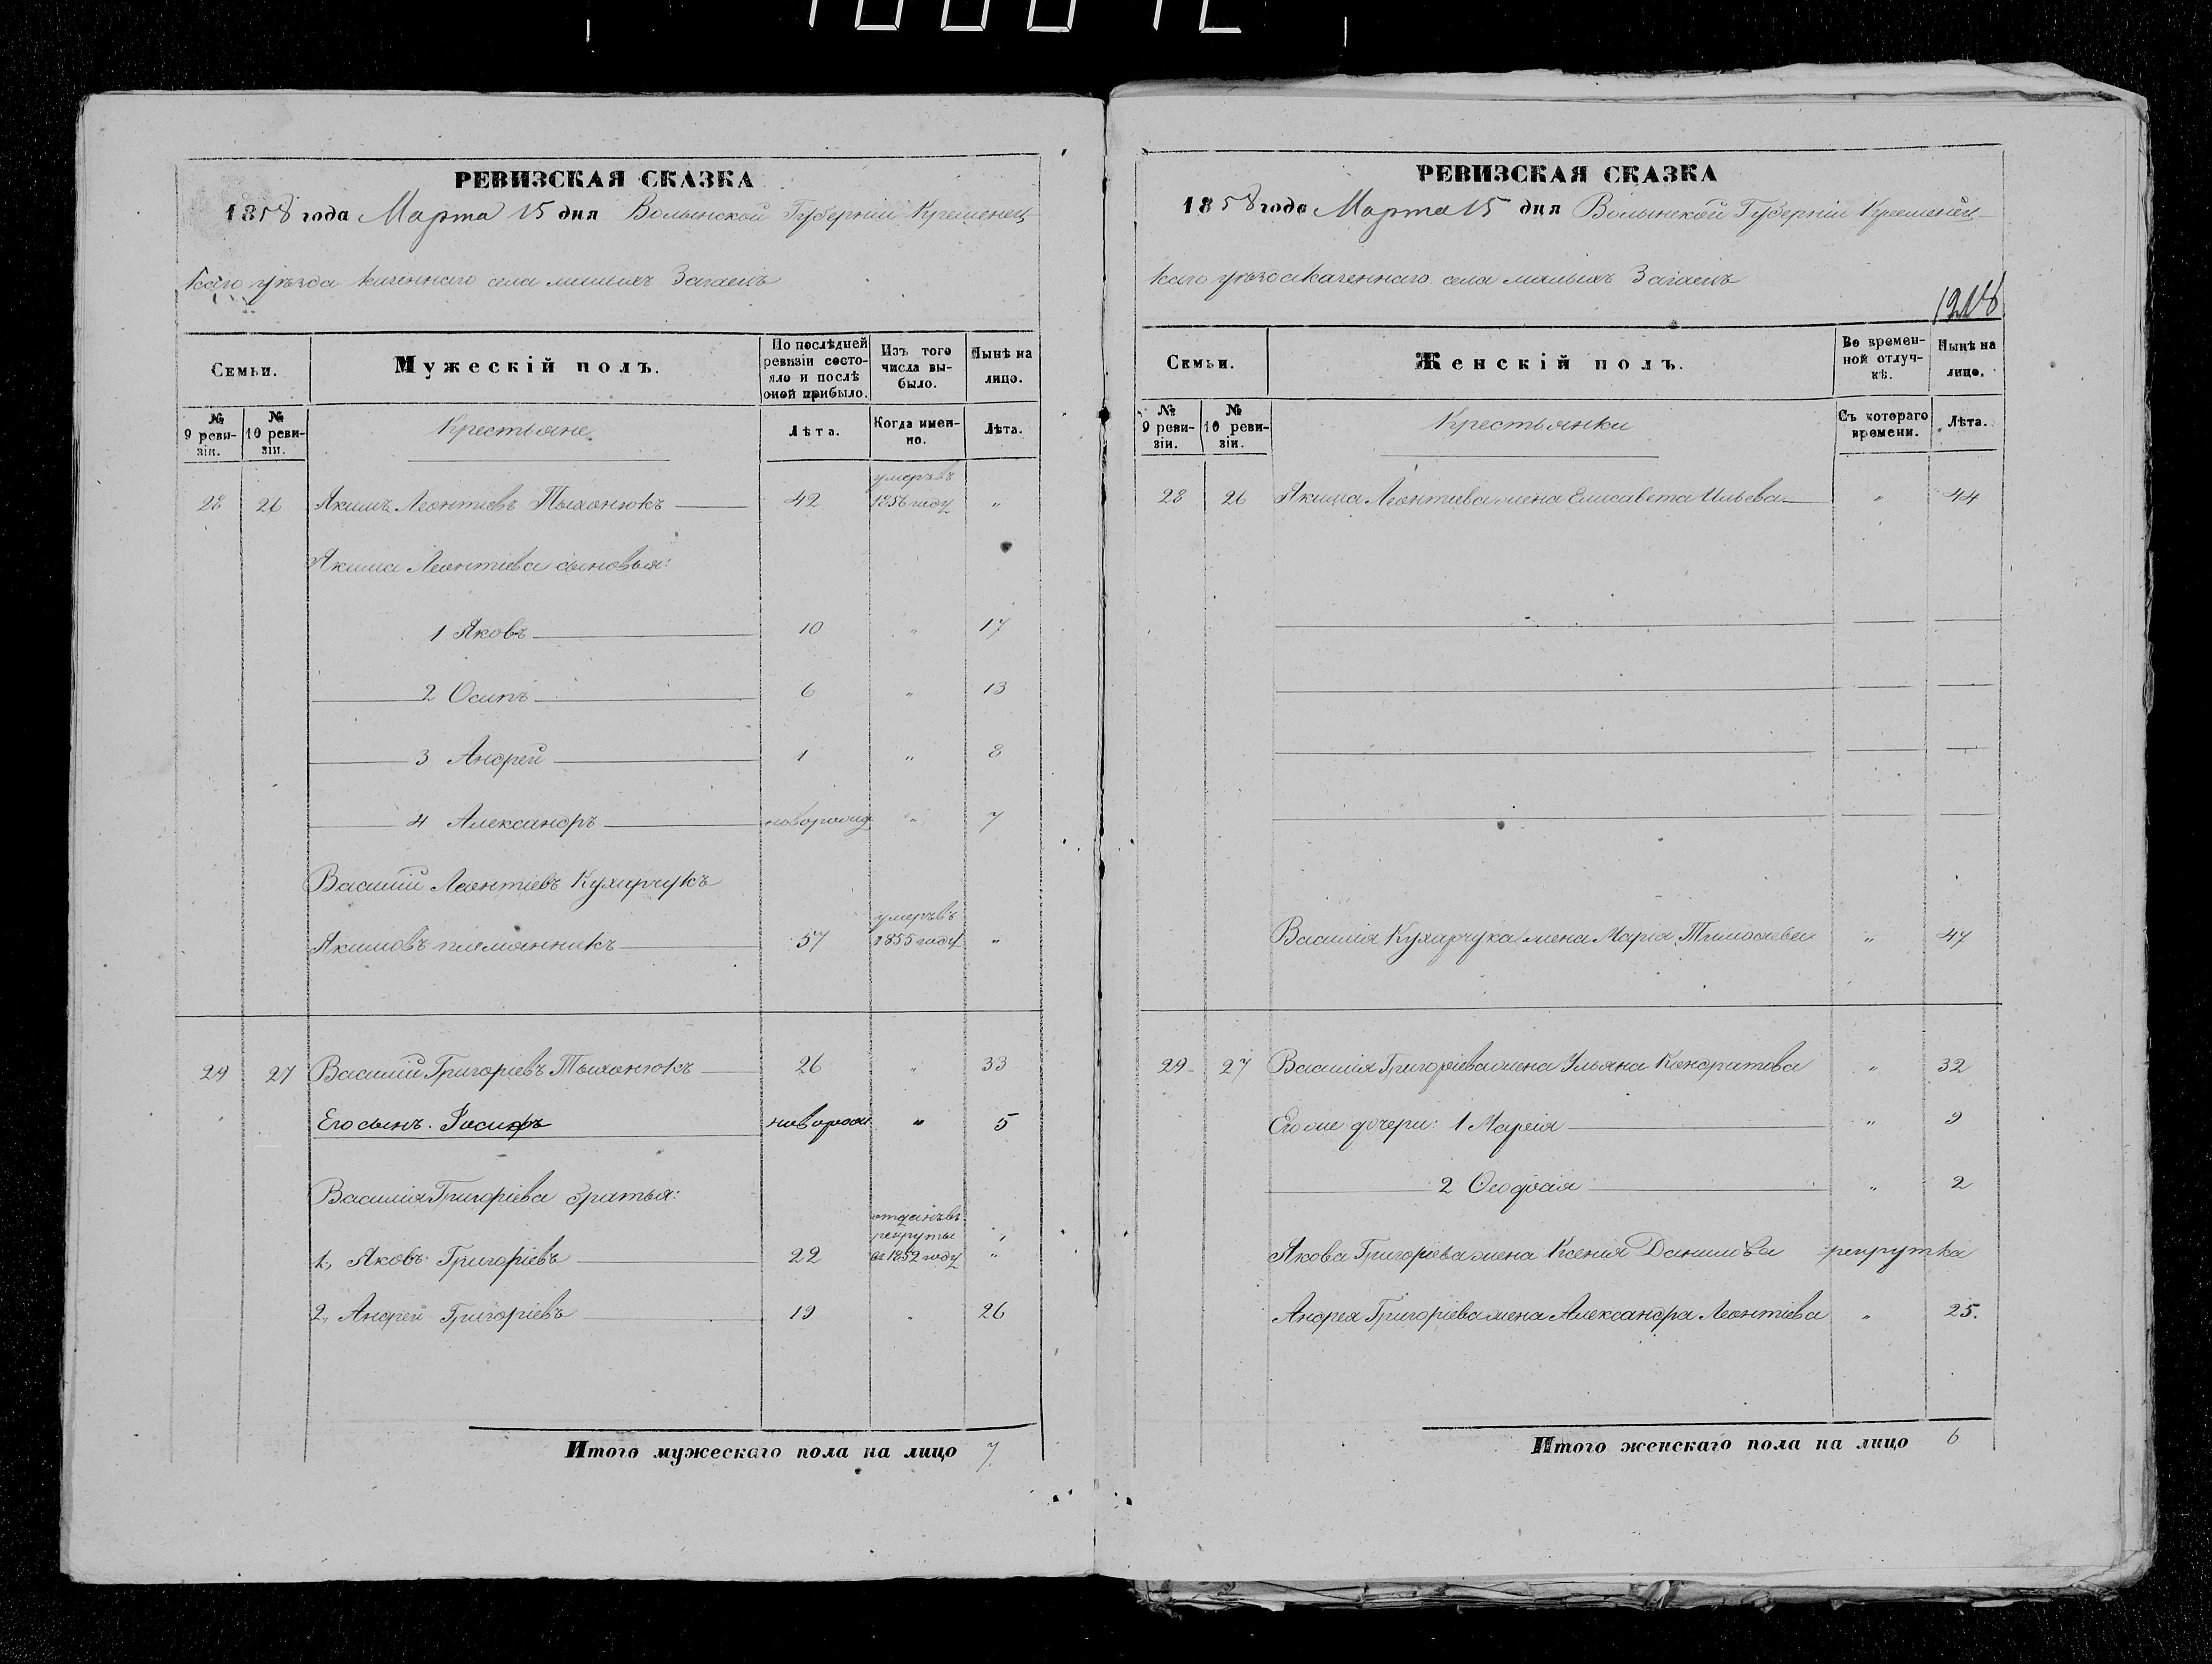 РЕВИЗСКАЯ СКАЗКА
1858 года Марта 15 дня Волынской Губерніи Кременец
каго уѣзда казеннаго села малыхъ Загаецъ
Семьи.
Мужескій полъ.
По послѣдней ревизіи состояло и послѣ оной прибыло.
Изъ того числа выбыло.
Нынѣ на лицо.
№ 9 ревизіи.
№ 10 ревизіи.
Крестьяне
Лѣта.
Когда именно.
Лѣта.
28 26 Акимъ Леонтіевъ Тыхонюкъ 42 умеръ въ 1856 году "
Акима Леонтіева сыновья:
1 Яковъ 10 " 17
2 Осипъ 6 " 13
3 Андрей 1 " 8
4 Александръ новорожд " 7
Василій Леонтіевъ Кухарчукъ
Акимовъ племянникъ 57 умеръ въ 1855 году "
29 27 Василій Григоріевъ Тыхонюкъ 26 " 33
Его сынъ. Іосифъ новорож " 5
Василія Григоріева братья:
1, Яковъ Григоріевъ 22 отданъ въ рекруты въ 1852 году "
2, Андрей Григоріевъ 19 " 26
Итого мужескаго пола на лицо 7
РЕВИЗСКАЯ СКАЗКА
1858 года Марта 15 дня Волынской Губерніи Кременец
каго уѣзда казеннаго села малыхъ Загаецъ
Семьи.
Женскій полъ.
Во временной отлучкѣ.
Нынѣ на лицо.
№ 9 ревизіи.
№ 10 ревизіи.
Крестьянки
Съ котораго времени.
Лѣта.
28 26 Акима Леонтіева жена Елисавета Ильева " 44
Василія Кухарчука жена Марія " 47
29 27 Василія Григоріева жена Ульяна Кондратова " 32
Его же дочери: 1 Марія " 9
2 Ѳеодосія " 2
Якова Григоріева жена Ксенія Данилова рекрутка
Андрея Григоріева жена Александра Леонтіева " 25.
Итого женскаго пола на лицо 6